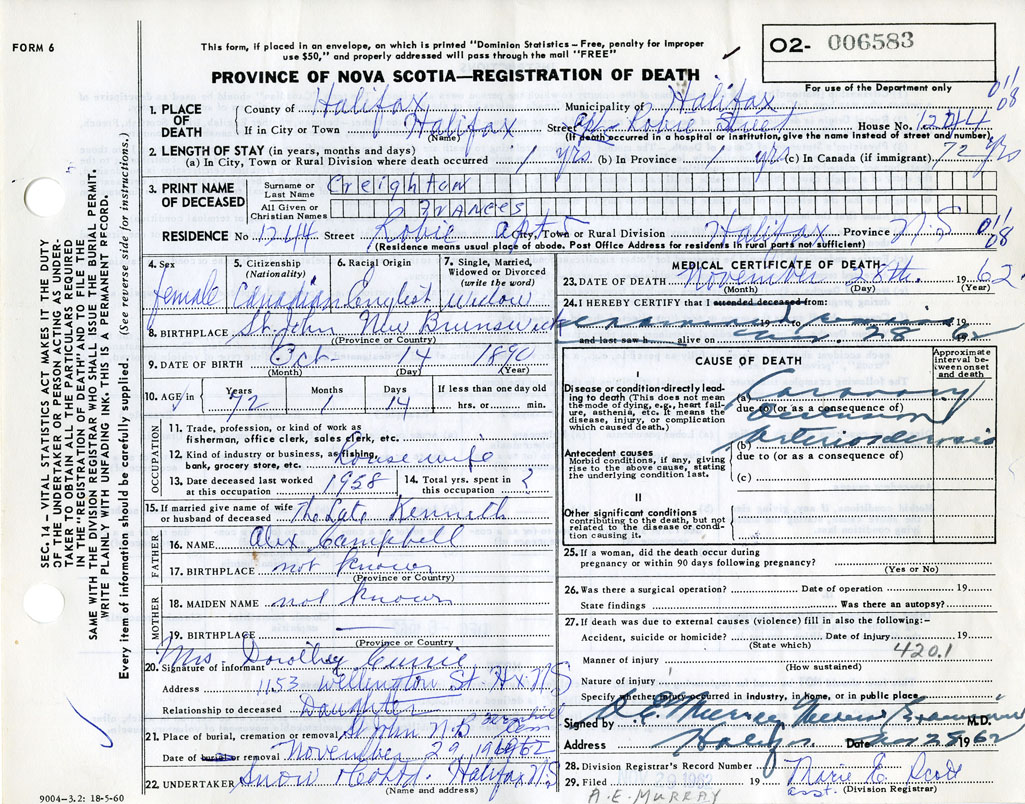 FORM 6
This form, if placed in an envelope, on which is printed "Dominion Statistics – Free, penalty for improper
use $50," and properly addressed will pass through the mail "FREE"
O2- 006583
PROVINCE OF NOVA SCOTIA—REGISTRATION OF DEATH
For use of the Department only
01/08
1. PLACE OF DEATH
County of Halifax Municipality of Halifax
If in City or Town Halifax Street Apt- Robie Street House No. 1244
(Name) (If death occurred in a hospital or institution, give the name instead of street and number)
2. LENGTH OF STAY (in years, months and days)
(a) In City, Town or Rural Division where death occurred 1 yrs (b) In Province 1 yrs (c) In Canada (if immigrant) 72 yrs
3. PRINT NAME OF DECEASED
Surname or Last Name Creighton
All Given or Christian Names Frances
RESIDENCE No 1244 Street Robie Apt 5 City, Town or Rural Division Halifax Province N.S 01/08
(Residence means usual place of abode. Post Office Address for residents in rural parts not sufficient)
4. Sex female
5. Citizenship (Nationality) Canadian
6. Racial Origin English
7. Single, Married, Widowed or Divorced (write the word) Widow
8. BIRTHPLACE St. John New Brunswick
(Province or Country)
9. DATE OF BIRTH Oct- 14 1890
(Month) (Day) (Year)
10. AGE in Years 72 Months 1 Days 14 If less than one day old hrs. or min.
OCCUPATION
11. Trade, profession, or kind of work as fisherman, office clerk, sales clerk, etc.
12. Kind of industry or business, as fishing, bank, grocery store, etc. housewife
13. Date deceased last worked at this occupation 1958
14. Total yrs. spent in this occupation ?
15. If married give name of wife or husband of deceased The Late Kenneth
FATHER
16. NAME Alex Campbell
17. BIRTHPLACE not known
(Province or Country)
MOTHER
18. MAIDEN NAME not known
19. BIRTHPLACE —
(Province or Country)
20. Signature of informant Mrs Dorothy Currie
Address 1153 Wellington St. Hx. N/S
Relationship to deceased Daughter
21. Place of burial, cremation or removal St John N.B
Date of burial or removal November 29, 1962
22. UNDERTAKER Snow & Co Ltd. Halifax N/S
(Name and address)
MEDICAL CERTIFICATE OF DEATH
23. DATE OF DEATH November 28th. 1962
(Month) (Day) (Year)
24. I HEREBY CERTIFY that I attended deceased from:
examined remains
19 to 19
and last saw h alive on Nov. 28 62
CAUSE OF DEATH
Approximate interval between onset and death
I
Disease or condition directly leading to death (This does not mean the mode of dying, e.g., heart failure, asthenia, etc. It means the disease, injury, or complication which caused death.)
(a) Coronary
due to (or as a consequence of)
(b) arteriosclerosis
due to (or as a consequence of)
(c)
Antecedent causes
Morbid conditions, if any, giving rise to the above cause, stating the underlying condition last.
II
Other significant conditions
contributing to the death, but not related to the disease or condition causing it.
25. If a woman, did the death occur during pregnancy or within 90 days following pregnancy?
(Yes or No)
26. Was there a surgical operation? Date of operation 19
State findings Was there an autopsy?
27. If death was due to external causes (violence) fill in also the following:–
Accident, suicide or homicide? Date of injury 19
(State which)
420.1
Manner of injury
(How sustained)
Nature of injury
Specify whether injury occurred in industry, in home, or in public place
Signed by A.E. Murray Medical Examiner M.D.
Address Halifax Date Nov 28 1962
28. Division Registrar's Record Number
29. Filed NOV 29 1962 Marie E Scott
asst. (Division Registrar)
A.E. MURRAY
9004–3.2: 18-5-60
SEC. 14 – VITAL STATISTICS ACT MAKES IT THE DUTY
OF THE UNDERTAKER OR PERSON ACTING AS UNDER-
TAKER TO OBTAIN ALL THE PARTICULARS REQUIRED
IN THE "REGISTRATION OF DEATH" AND TO FILE THE
SAME WITH THE DIVISION REGISTRAR WHO SHALL ISSUE THE BURIAL PERMIT.
WRITE PLAINLY WITH UNFADING INK. THIS IS A PERMANENT RECORD.
Every item of information should be carefully supplied. (See reverse side for instructions.)